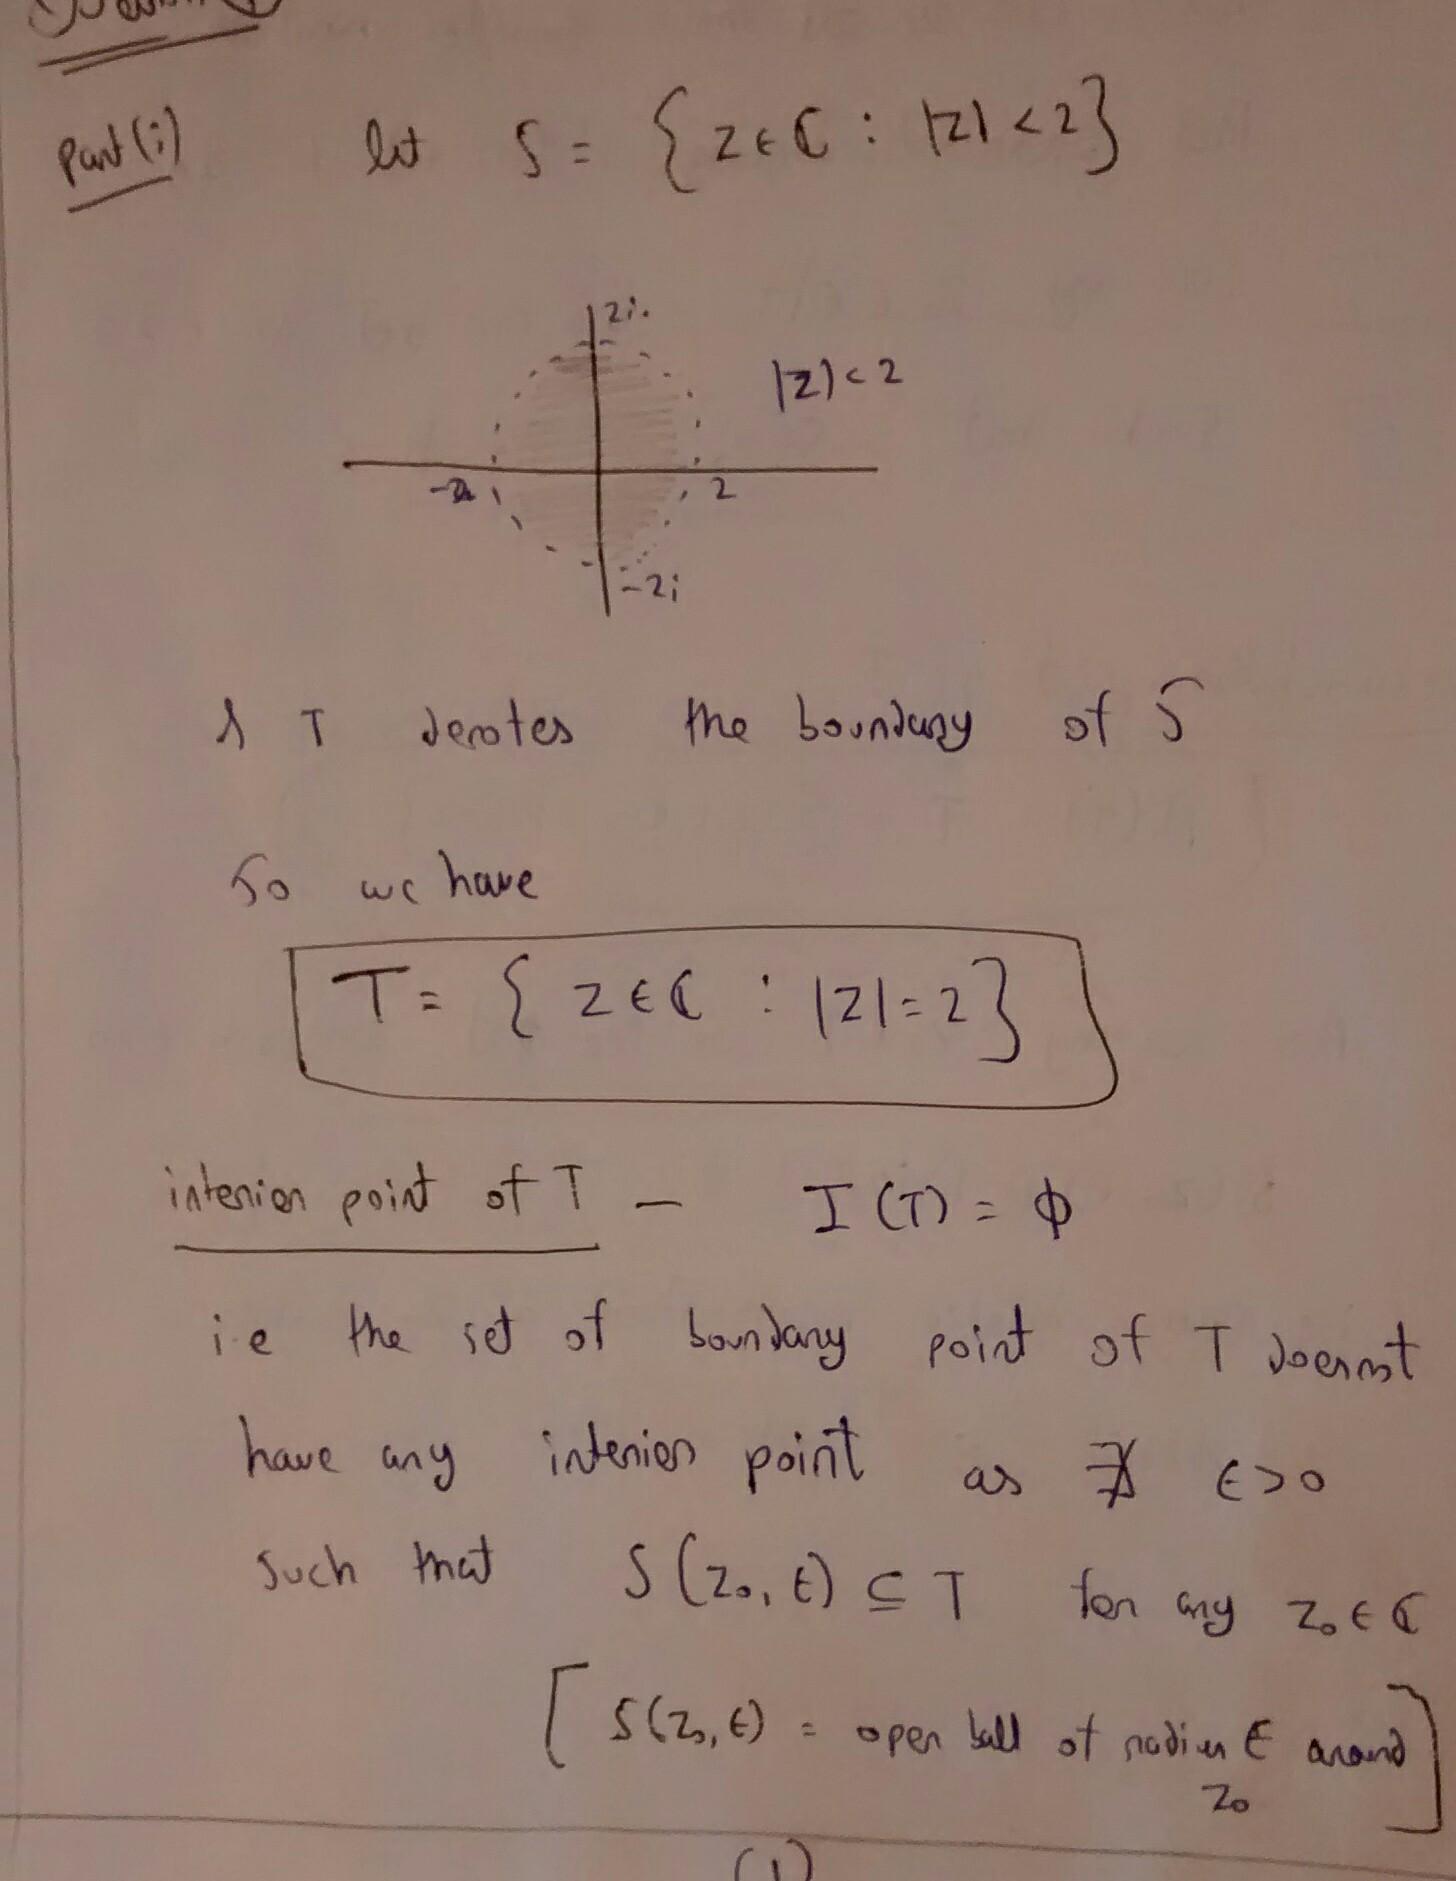 Part (i) let S = { z ∈ ℂ : |z| < 2}
2i
|z| < 2
-2 2
-2i
& T denotes the boundary of S
So we have
T = { z ∈ ℂ : |z| = 2}
interior point of T – I (T) = ϕ
i.e the set of boundary point of T doesnot
have any interior point as ∄ ϵ > 0
such that S (z₀, ϵ) ⊆ T for any z₀ ∈ ℂ
[ S(z₀, ϵ) = open ball of radius ϵ around
z₀ ]
(1)